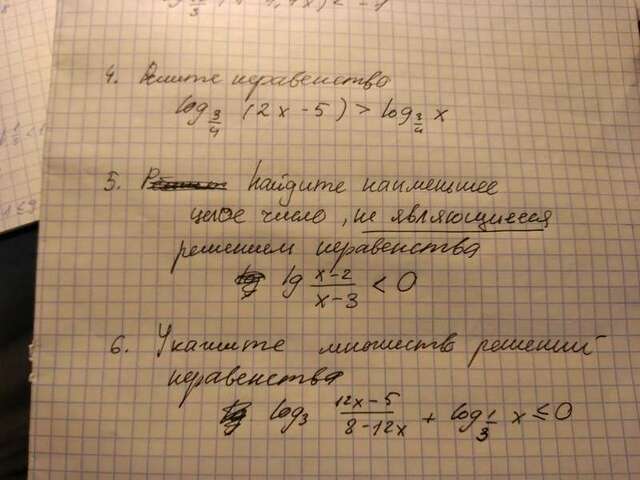 4. Решите неравенство
log_{3/4} (2x-5) > log_{3/4} x
5. Найдите наименьшее
целое число, не являющиеся
решением неравенства
lg \frac{x-2}{x-3} < 0
6. Укажите множество решений
неравенства
log_3 \frac{12x-5}{8-12x} + log_{1/3} x ≤ 0